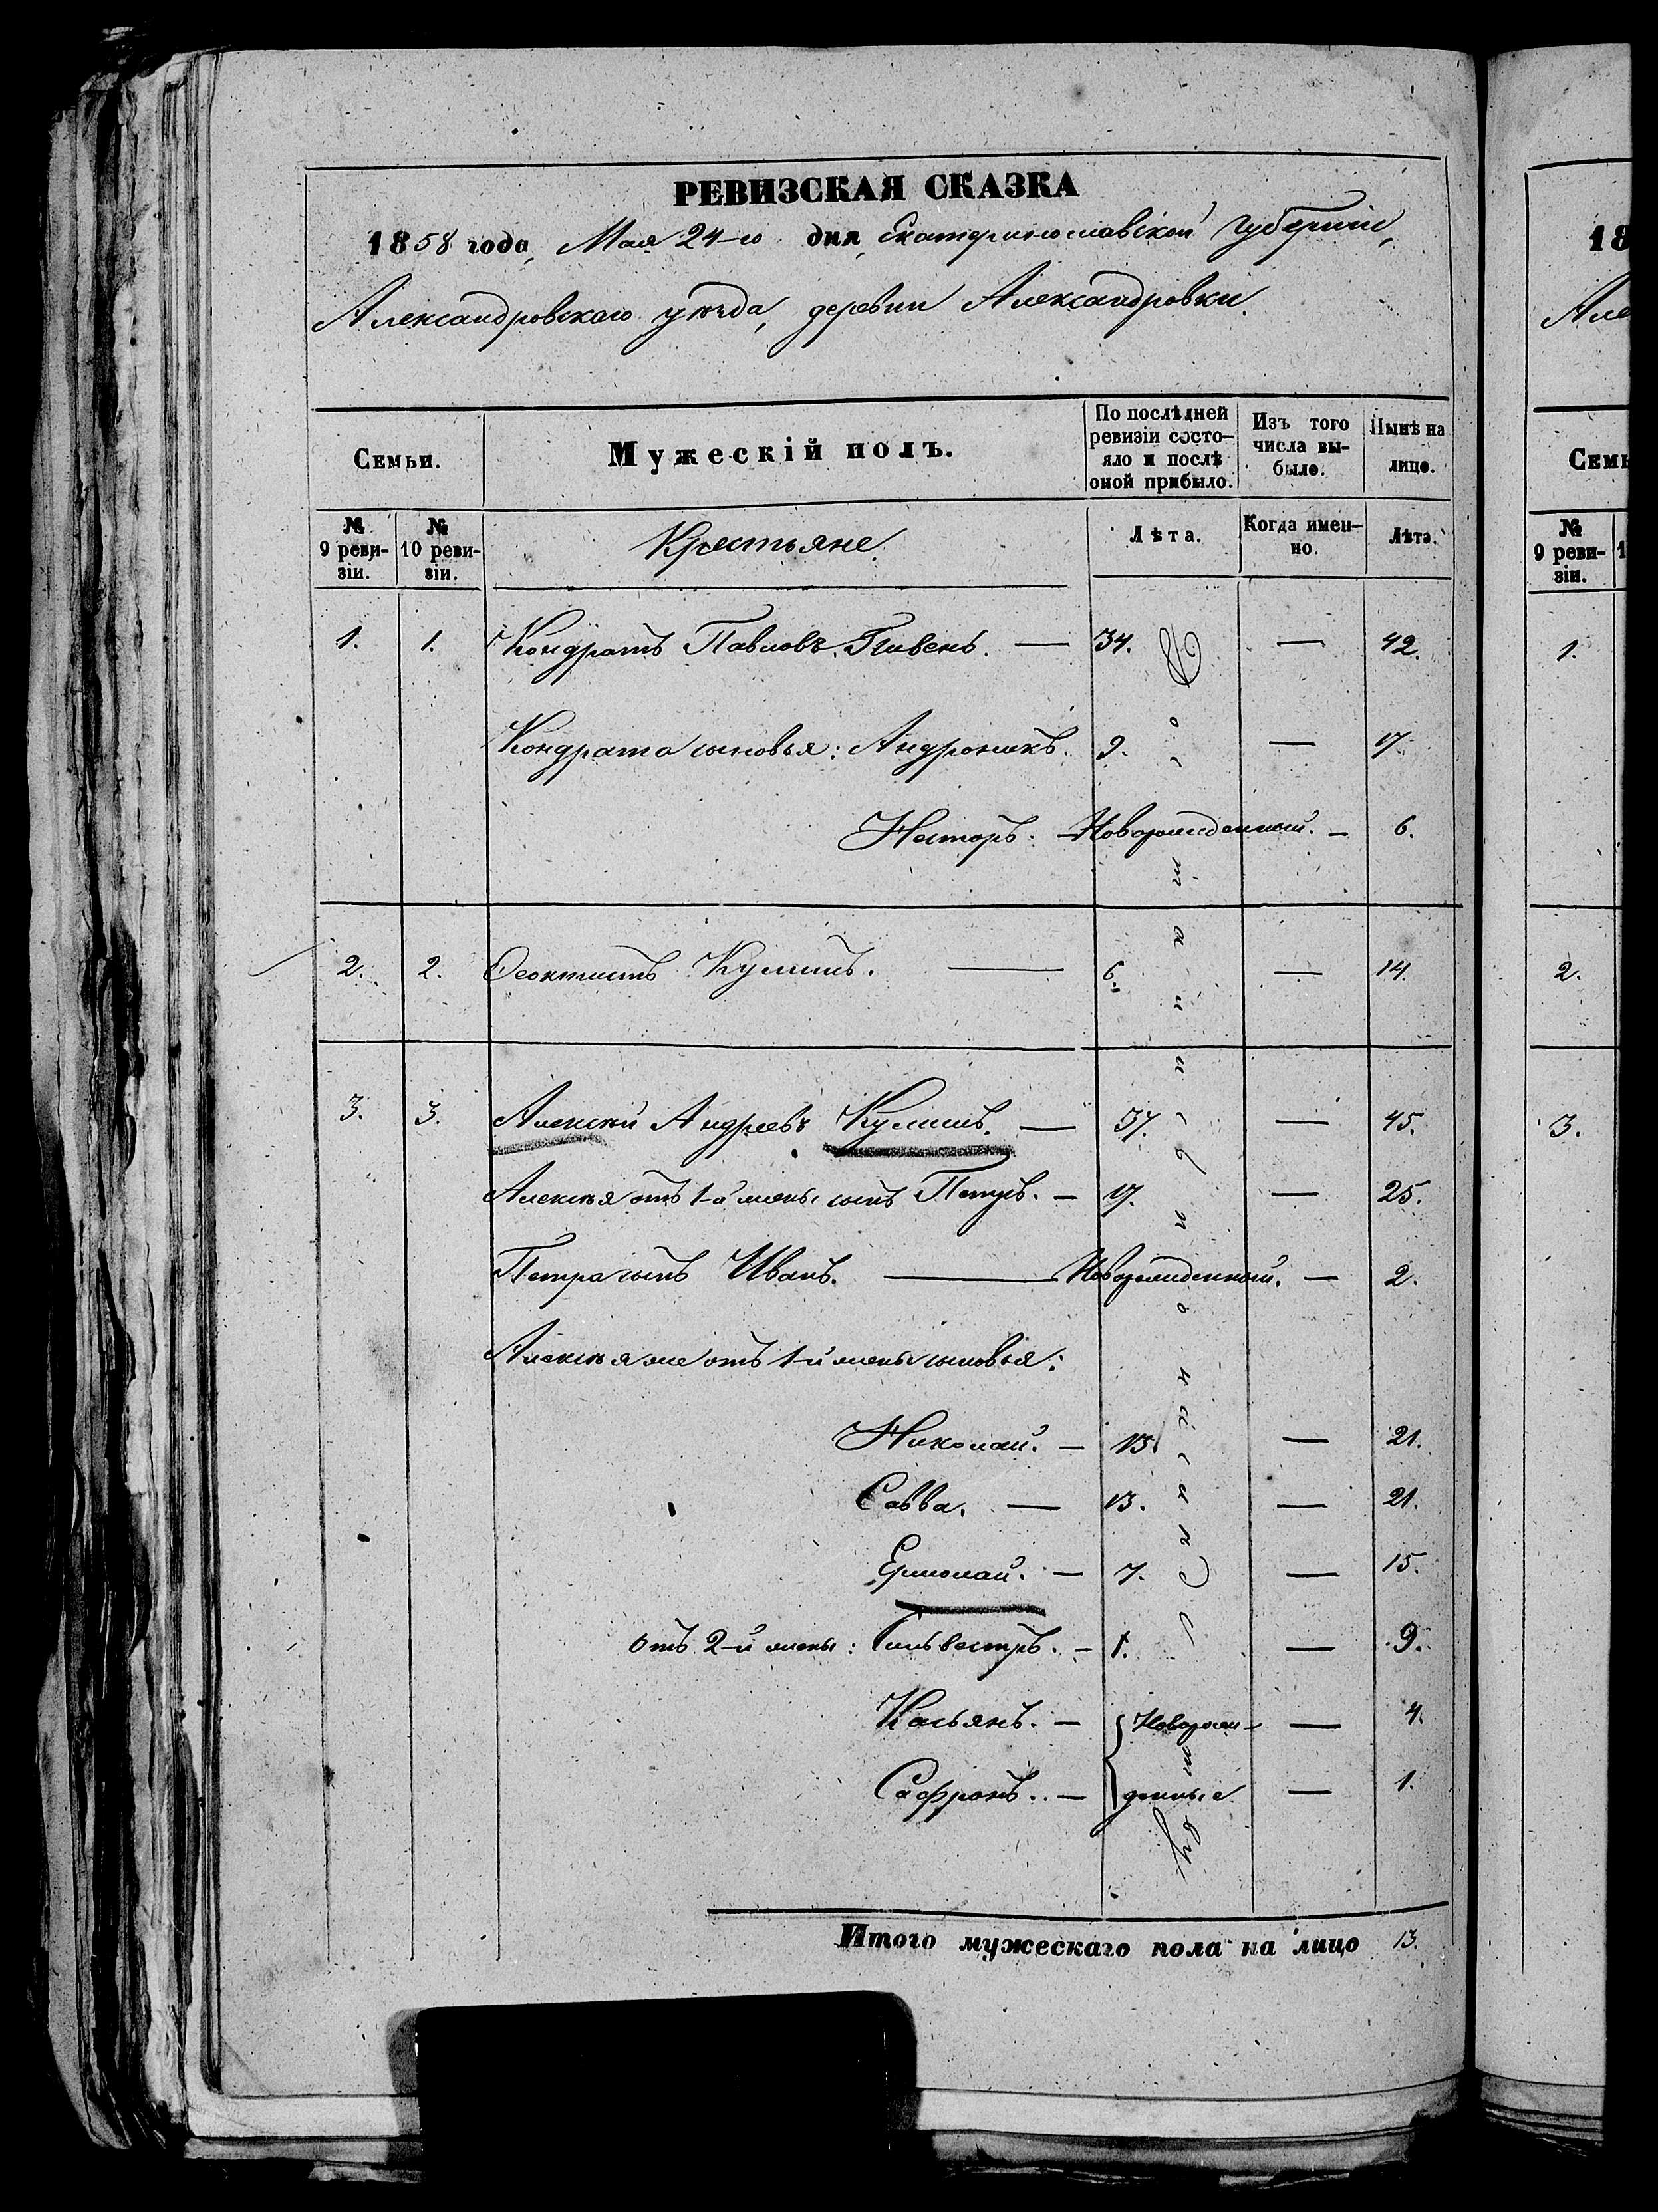 РЕВИЗСКАЯ СКАЗКА
1858 года, Мая 24-го дня, Екатеринославской губерніи,
Александровскаго уѣзда, деревни Александровки.
Семьи.
Мужескій полъ.
По послѣдней ревизіи состо-
яло и послѣ оной прибыло.
Изъ того числа вы-
было.
Нынѣ на лицо.
№ 9 реви-
зіи.
№ 10 реви-
зіи.
Крестьяне
Лѣта.
Когда имен-
но.
Лѣта.
1. 1. Кондратъ Павловъ — 34. — 42.
Кондрата сыновья: Андроникъ. 9. — 17.
Несторъ. — Новорожденный. — 6.
2. 2. Ѳеоктистъ — 6. — 14.
3. 3. Алексѣй Андреевъ — 37. — 45.
Алексѣя отъ 1-й жены сынъ Петръ. — 17. — 25.
Петра сынъ Иванъ. — Новорожденный. — 2.
Алексѣя же отъ 1-й жены сыновья:
Николай. — 13. — 21.
Савва. — 13. — 21.
Ермолай. — 7. — 15.
отъ 2-й жены: Сильвестръ. — 1. — 9.
Касьянъ. — Новорож- — 4.
Сафронъ. — денные — 1.
Итого мужескаго пола на лицо 13.
18
Але
Семь
№ 9 реви-
зіи.
1
1.
2.
3.